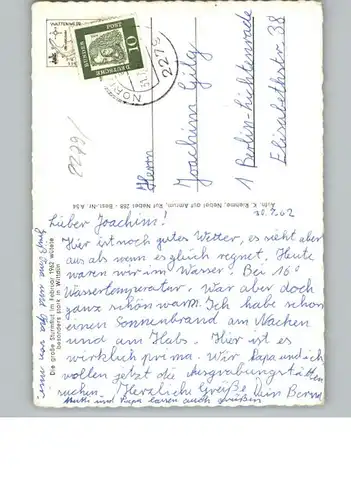 WATTENMEER
DEUTSCHE
BUNDES
POST
10
2279
2279/
Herrn
Joachim Gily
1 Berlin-Lichtenrade
Elisabethstr 38
Aufn. K. Kiemne, Nebel auf Amrum, Ruf Nebel 258 - Best.-Nr. A 54
Die große Sturmflut im Februar 1962 wütete
besonders stark in Wittdün
20.7.62
Lieber Joachim!
Hier ist noch gutes Wetter, es sieht aber
aus als wenn es gleich regnet. Heute
waren wir im Wasser. Bei 16°
Wassertemperatur. War aber doch
ganz schön warm. Ich habe schon
einen Sonnenbrand am Nacken
und am Hals. Hier ist es
wirklich prima. Wir Papa und ich
wollen jetzt die Ausgrabungstätten
suchen. Herzliche Grüße Dein Bernd
Mutti und Papa lassen auch grüßen
Grüß Oma und Opa von mir